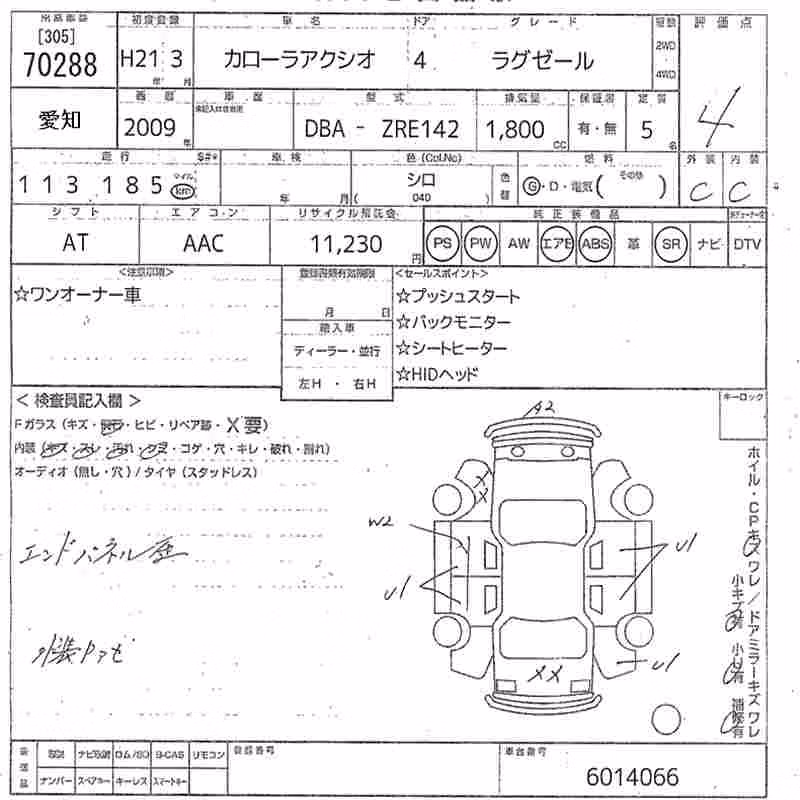 出品車番 初度登録 車名 ドア グレード 駆動 評価点
[305] 2WD
70288 H21 3 カローラアクシオ 4 ラグゼール 4
年 月 4WD
愛知 西暦 車歴 型式 排気量 保証書 定員
2009年 DBA - ZRE142 1,800cc 有・無 5名
走行 $#* 車検 色(Col.No) 燃料 外装 内装
113 185 マイル km 年 月 シロ 色替 Ⓖ・D・電気( その他 ) C C
( 040 )
シフト エアコン リサイクル預託金 純正装備品
AT AAC 11,230円 PS PW AW エアB ABS 革 SR ナビ DTV
<注意事項> 登録書類有効期限 <セールスポイント>
☆ワンオーナー車 月 日 ☆プッシュスタート
輸入車 ☆バックモニター
ディーラー・並行 ☆シートヒーター
左H ・ 右H ☆HIDヘッド
< 検査員記入欄 > キーロック
Fガラス (キズ・飛石・ヒビ・リペア跡・X要)
内装 (キズ・スレ・汚れ・ヤニ・コゲ・穴・キレ・破れ・割れ)
オーディオ (無し・穴) / タイヤ (スタッドレス)
A2
X
X
W2
U1
U1
エンドパネル歪
U1
XX
ホイル・CPキズワレ/ドアミラーキズワレ
小キズ有 小U有 補修有
装備品 取説 ナビ取説 ロム/SD B-CAS リモコン 登録番号 車台番号
ナンバー スペアキー キーレス スマートキー 6014066